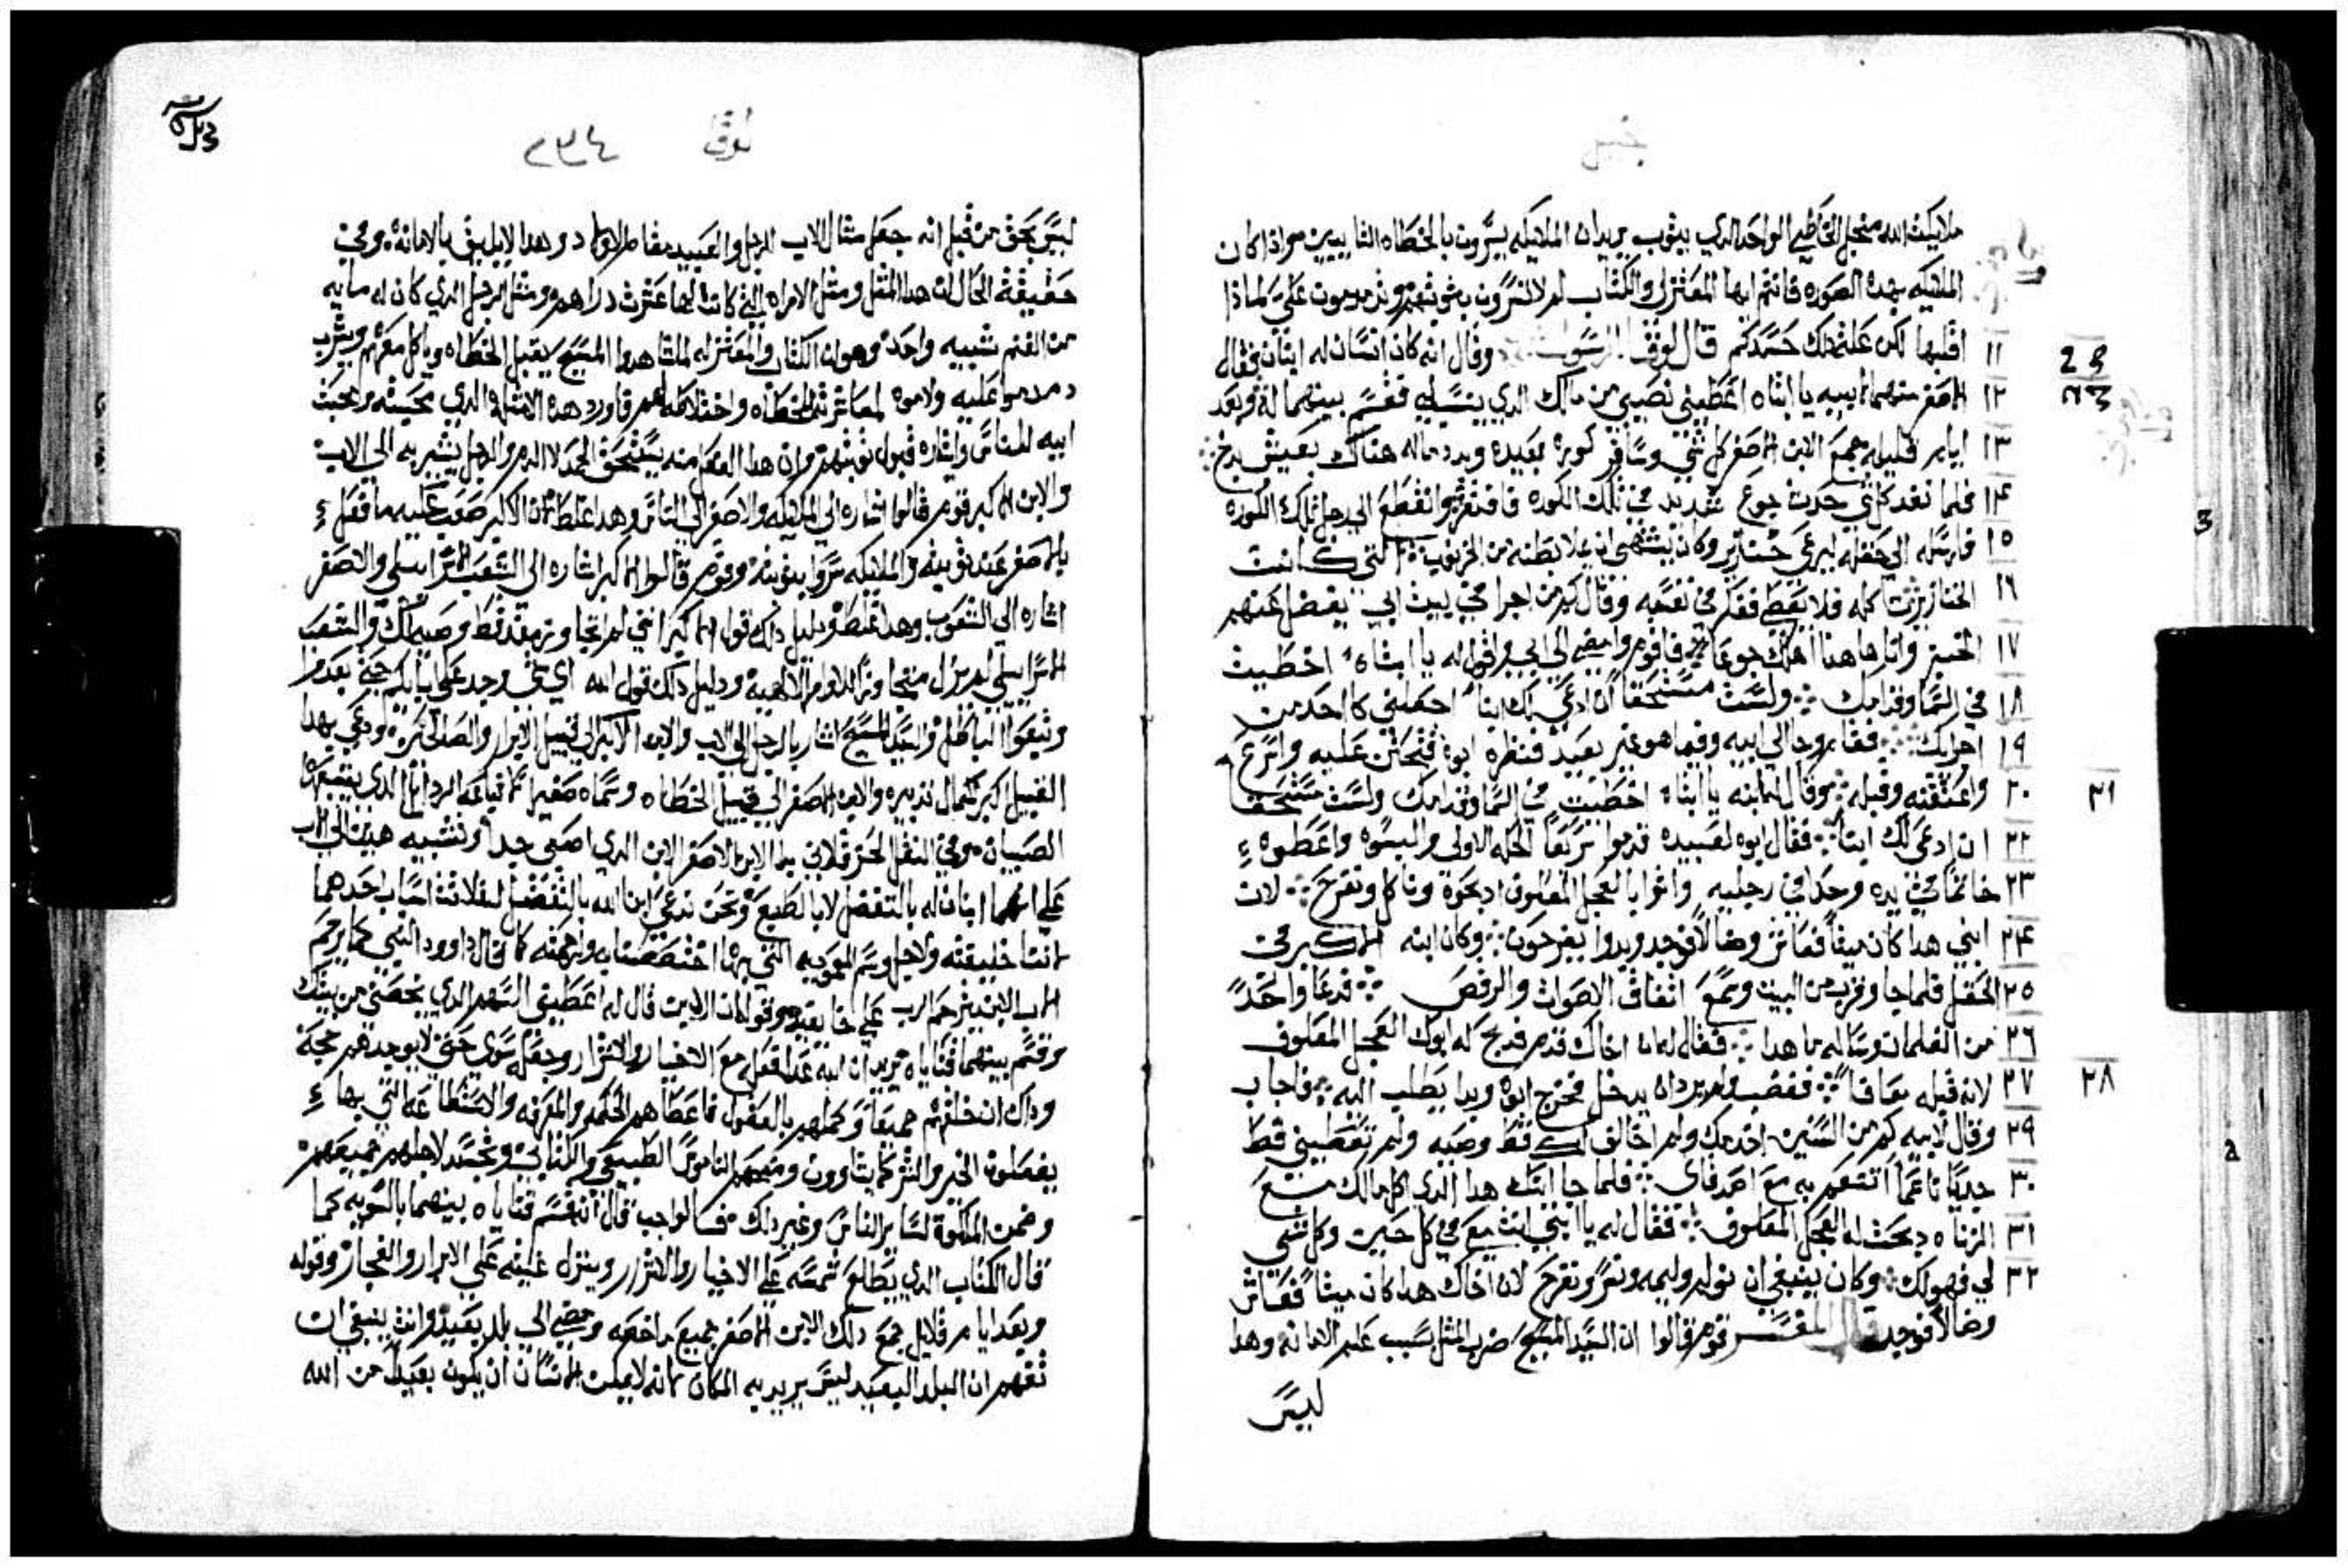 ملايكت الله منجل الخاطي الواحد الدي يتوب يريدان الملايكه يسرون بالخطاه التايبين واذا كان
الملايكه بهده الصوره فانتم ايها المعتزله والكتاب لم لا تسرون بتوبتهم وتدمدمون علي لماذا
١١ اقبلها لكن علة دلك حسدكم قال لوقا الرسول وقال انه كان انسان له ابنان فقال
١٢ الاصغر منهما لابيه يا ابتاه اعطيني نصيبي من مالك الدي ينسا لي فقسم بينهما له وبعد
١٣ ايام قليله جمع الابن الاصغر كل شي وسافر كورة بعيده وبدد ماله هناك بعيش بدخ
١٤ فلما نفد كلشي حدت جوع شديد في تلك الكوره فافتقر وانقطع الي رجل تلك الكوره
١٥ فارسله الي حقله ليرعي خنازير وكان يشتهي ان يملا بطنه من الخرنوب التي كانت
١٦ الخنازير تاكله فلا يعط ففكر في نفسه وقال كم من اجرا في بيت ابي يفضل عنهم
١٧ الخبز وانا هاهنا اهلك جوعا فاقوم وامضي الي ابي واقول له يا ابتاه اخطيت
١٨ في السما وقدامك ولست مستحقا ان ادعي لك ابنا اجعلني كاحد من
١٩ اجرايك فقام وجا الي ابيه وفيما هو غير بعيد فنظره ابوه فتحنن عليه واسرع
٢٠ واعتنقه وقبله وقال له ابنه يا ابتاه اخطيت في السما وقدامك ولست مستحقا
٢٢ ان ادعي لك ابنا فقال ابوه لعبيده قدموا سريعا الحله الاولي والبسوه واعطوه
٢٣ خاتما في يده وحدا في رجليه واتوا بالعجل المعلوف ادبحوه وناكل ونفرح لان
٢٤ ابني هدا كان ميتا فعاش وضالا فوجد وبدوا يفرحون وكان ابنه الاكبر في
٢٥ الحقل فلما جا وقرب من البيت وسمع اتفاق الاصوات والرقص فدعا واحدا
٢٦ من الغلمان وساله ما هدا فقال له ان اخاك قدم فدبح له ابوك العجل المعلوف
٢٧ لانه قبله معافا فغضب ولم يرد ان يدخل فخرج ابوه وبدا يطلب اليه فاجاب
٢٩ وقال لابيه كم من السنين اخدمك ولم اخالف لك قط وصيه ولم تعطيني قط
٣٠ جديا ناعما اتنعم به مع اصدقاي فلما جا ابنك هدا الدي اكل مالك مع
٣١ الزناه دبحت له العجل المعلوف فقال له يا ابني انت معي في كل حين وكل شي
٣٢ لي فهو لك وكان ينبغي ان نولم وليمه ونسر ونفرح لان اخاك هدا كان ميتا فعاش
وضالا فوجد قال المفسر قوم قالوا ان السيد المسيح ضرب المثل بسبب علم الامانه وهدا
ليس
28
٣١
٢٨
لوقا
٢٣٤
ليس بحق من قبل انه جعل مثال الاب الرجل والعبيد مقام الاولاد وهدا لا يليق بالامانه وفي
حقيقة الحال ان هدا المثل ومثل الامراه التي كانت لها عشرت دراهم ومثل الرجل الدي كان له مايه
من الغنم شبيه واحد وهو ان الكتاب والمعتزله لما شاهدوا المسيح يقبل الخطاه وياكل معهم ويشرب
دمدموا عليه ولاموه لمعاشرته الخطاه واختلاطه لهم فاورد هده الامثله الدي محبته ومحبت
ابيه للناس وايثاره قبول توبتهم وان هدا الفعل منه يستحق الحمد لا الدم والرجل يشير به الي الاب
والابن الاكبر قوم قالوا اشاره الي الملايكه والاصغر الي الناس وهدا غلط لان الاكبر صعب عليه ما فعل
بالاصغر عند توبته والملايكه سروا بتوبته وقوم قالوا الاكبر اشاره الي الشعب الاسراييلي والاصغر
اشاره الي الشعوب وهدا غلط ودليل داك قول الاكبر انني لم اتجاوز بعد قط وصيه لك والشعب
الاسراييلي لم يزل متجاوزا للاوامر الالاهيه ودليل دلك قول الله اي شي وجد علي اباوكم حجة بعدوا
وتبعوا الباطل والسيد المسيح اشار بالرجل الي الاب والابن الاكبر الي قبيل الابرار والصالحين ودعي بهدا
القبيل اكبر لكمال تدبيره والابن الاصغر الي قبيل الخطاه وسماه صغيرا لاتباعه الردايل الدي يتبعها
الصبيان وفي النقل الحرقلاني بدل الابن الاصغر الابن الدي اصغر جدا وتشبيه هدين الي الاب
علي انهما ابنان له بالتفضل لا بالطبع ونحن ندعي ابن الله بالتفضل لثلاثة اسباب احدهما
لاننا خليقته ولاجل وسم العموديه التي بها اختصصنا به ولرحمته كما قال داوود النبي كما يرحم
الاب الابن يترحم الرب علي خايفيه وقوله ان الابن قال له اعطيني السهم الدي يخصني من بيتك
وقسم بينهما قناياه يريد ان الله عدل فعله مع الاخيار والاشرار وجعله سوي حتي لا يوجد لهم حجة
وداك ان خلقهم جميعا وكملهم بالعقول فاعطاهم الحكمه والمعرفه والاستطاعه التي بها
يفصلون الخير والشر كما يشاوون ومنحهم الناموس الطبيعي والكتابي وتجسد لاجلهم جميعهم
وضمن الملكوت لساير الناس وغير دلك فبالواجب قال انه قسم قناياه بينهما بالسويه كما
قال الكتاب الدي يطلع شمسه علي الاخيار والاشرار وينزل غيثه علي الابرار والفجار وقوله
وبعد ايام قلايل جمع دلك الابن الاصغر جميع ما خصه ومضي الي بلد بعيد وانت ينبغي ان
تفهم ان البلد البعيد ليس يريد به المكان لانه لا يمكن الانسان ان يكون بعيدا من الله